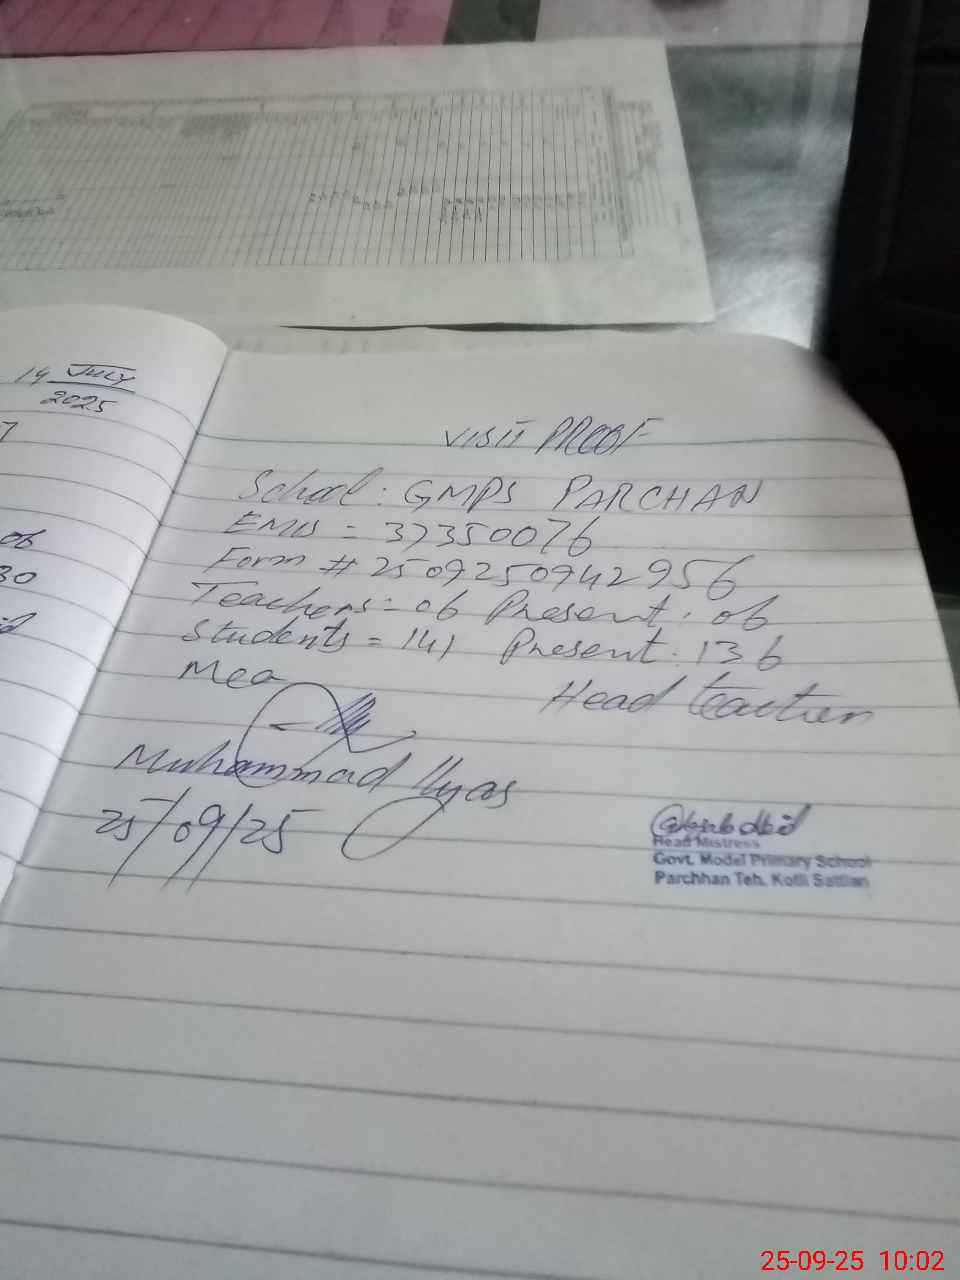 14 JULY
2025
7
06
30
VISIT PROOF
School: GMPS PARCHAN
EMIS = 37350076
Form # 2509250942956
Teachers = 06 Present: 06
Students = 141 Present: 136
Mea
Head teacher
Muhammad Ilyas
25/09/25
Head Mistress
Govt. Model Primary School
Parchhan Teh. Kotli Sattian
25-09-25 10:02